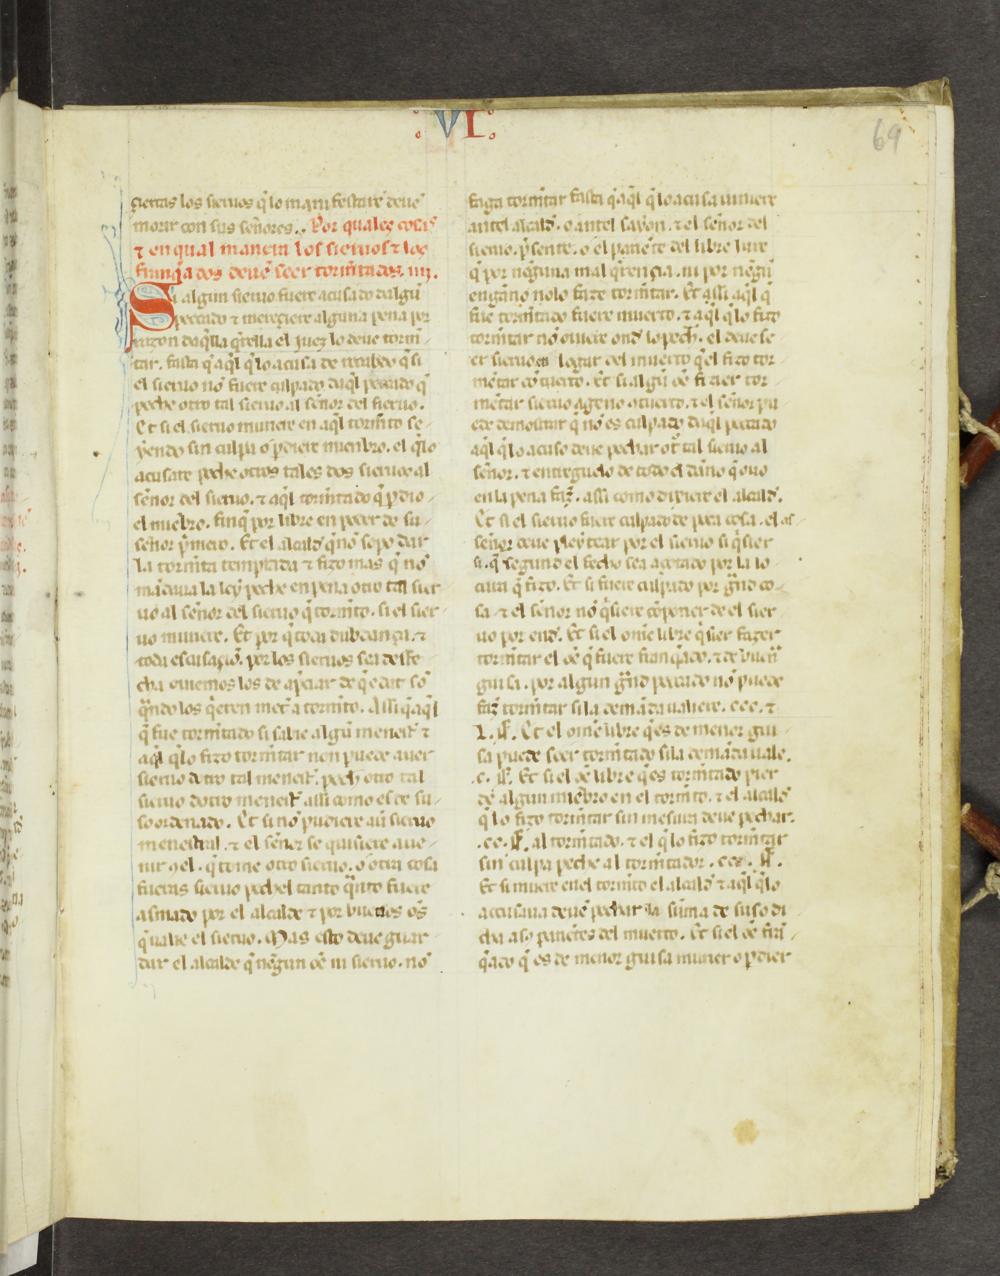 VI.
69
çiertas los sieruos q̃ lo manifestarẽ deuẽ
morir con sus señores.. Por quales cosas
⁊ en qual manera los sieruos ⁊ los
franq̃ados deuẽ seer tormẽtados. iiij.
Si algun sieruo fuere acusado dalgũ
peccado ⁊ mereçiere alguna pena por
razon daq̃lla q̃rella el juez lo deue tormẽ
tar. fasta q̃ aq̃l q̃ lo acusa de recabdo q̃ si
el sieruo nõ fuere culpado daq̃l peccado q̃
peche otro tal sieruo al señor del sieruo.
Et si el sieruo muriere en aq̃l tormẽto se
yendo sin culpa o p̃diere mienbro. el q̃ lo
acusare peche otros tales dos sieruos al
señor del sieruo. ⁊ aq̃l tormẽtado q̃ p̃dio
el miẽbro. finq̃ por libre en poder de su
señor p̃mero. Et el alcalđ q̃ nõ sopo dar
la tormẽta temprada ⁊ fizo mas q̃ nõ
mãdaua la ley peche en pena otro tal sier
uo al señor del sieruo q̃ tormẽto. si el sier
uo muriere. Et por q̃ toda dubdança. ⁊
toda escusaçiõ. por los sieruos sea desfe
cha
q̃ndo los q̃eren met̃ a tormẽto. Assi q̃ aq̃l
q̃ fue tormẽtado si sabie algũ menest̃ ⁊
aq̃l q̃ lo fizo tormẽtar non puede auer
sieruo dotro tal menest̃. pech̃ otro tal
sieruo dotro menest̃ assi como es de su
so ordenado. Et si nõ pudiere auer sieruo
menestral. ⁊ el señor se quisiere aue
nir ꝯel. q̃ tome otro sieruo. o otra cosa
fueras sieruo pechel tanto q̃nto fuere
asmado por el alcalde ⁊ por buenos oẽs
q̃ ualie el sieruo. Mas esto deue guar
dar el alcalde q̃ nẽgun oẽ ni sieruo. nõ
faga tormẽtar fasta q̃ aq̃l q̃ lo acusa iurare
antel alcalđ. o antel sayon. ⁊ el señor del
sieruo. p̃sente. o el pariẽte del libre iure
q̃ por nẽguna mal q̃rençia. ni por nẽgũ
engãno nolo faze tormẽtar. Et assi aq̃l q̃
fue tormẽtado fuere muerto. ⁊ aq̃l q̃ lo fizo
tormẽtar nõ ouiere onđ lo pech̃. el deue se
er sieruo en logar del muerto q̃ el fizo tor
mẽtar cõ tuerto. Et si algũ oẽ fizier tor
mẽtar sieruo ageno a tuerto. ⁊ el señor pu
ede demostrar q̃ nõ es culpado daq̃l peccado
aq̃l q̃ lo acuso deue pechar ot̃ tal sieruo al
señor. ⁊ entreguelo de todo el dãno q̃ ouo
en la pena faz̃. assi como dixiere el alcalđ.
Et si el sieruo fuere culpado de poca cosa. el
señor deue pleytear por el sieruo si q̃sier
si. q̃ segund el fecho sea açotado por la lo
cura q̃ fizo. Et si fuere culpado por grãd co
sa ⁊ el señor nõ q̃siere cõponer de el sier
uo por enđ. Et si el omẽ libre q̃sier fazer
tormẽtar el oẽ q̃ fuere franq̃ado. ⁊ de buen
guisa. por algun grãd peccado nõ puede
faz̃ tormẽtar si la demãda ualiere. ccc. ⁊
Et el omẽ libre q̃ es de menor gui
sa puede seer tormẽtado si la demãda uale.
Et si el oẽ libre q̃ es tormẽtado pier
de algun miẽbro en el tormẽto. ⁊ el alcalđ
q̃ lo fizo tormẽtar sin mesura deue pechar.
al tormẽtado. ⁊ el q̃ lo fizo tormẽtar
sin culpa peche al tormẽtador.
Et si muere en el tormẽto el alcalđ ⁊ aq̃l q̃ lo
accusaua deuẽ pechar la sũma de suso di
cha a so pariẽtes del muerto. Et si el oẽ frã
q̃ado q̃ es de menor guisa murier o p̃dier